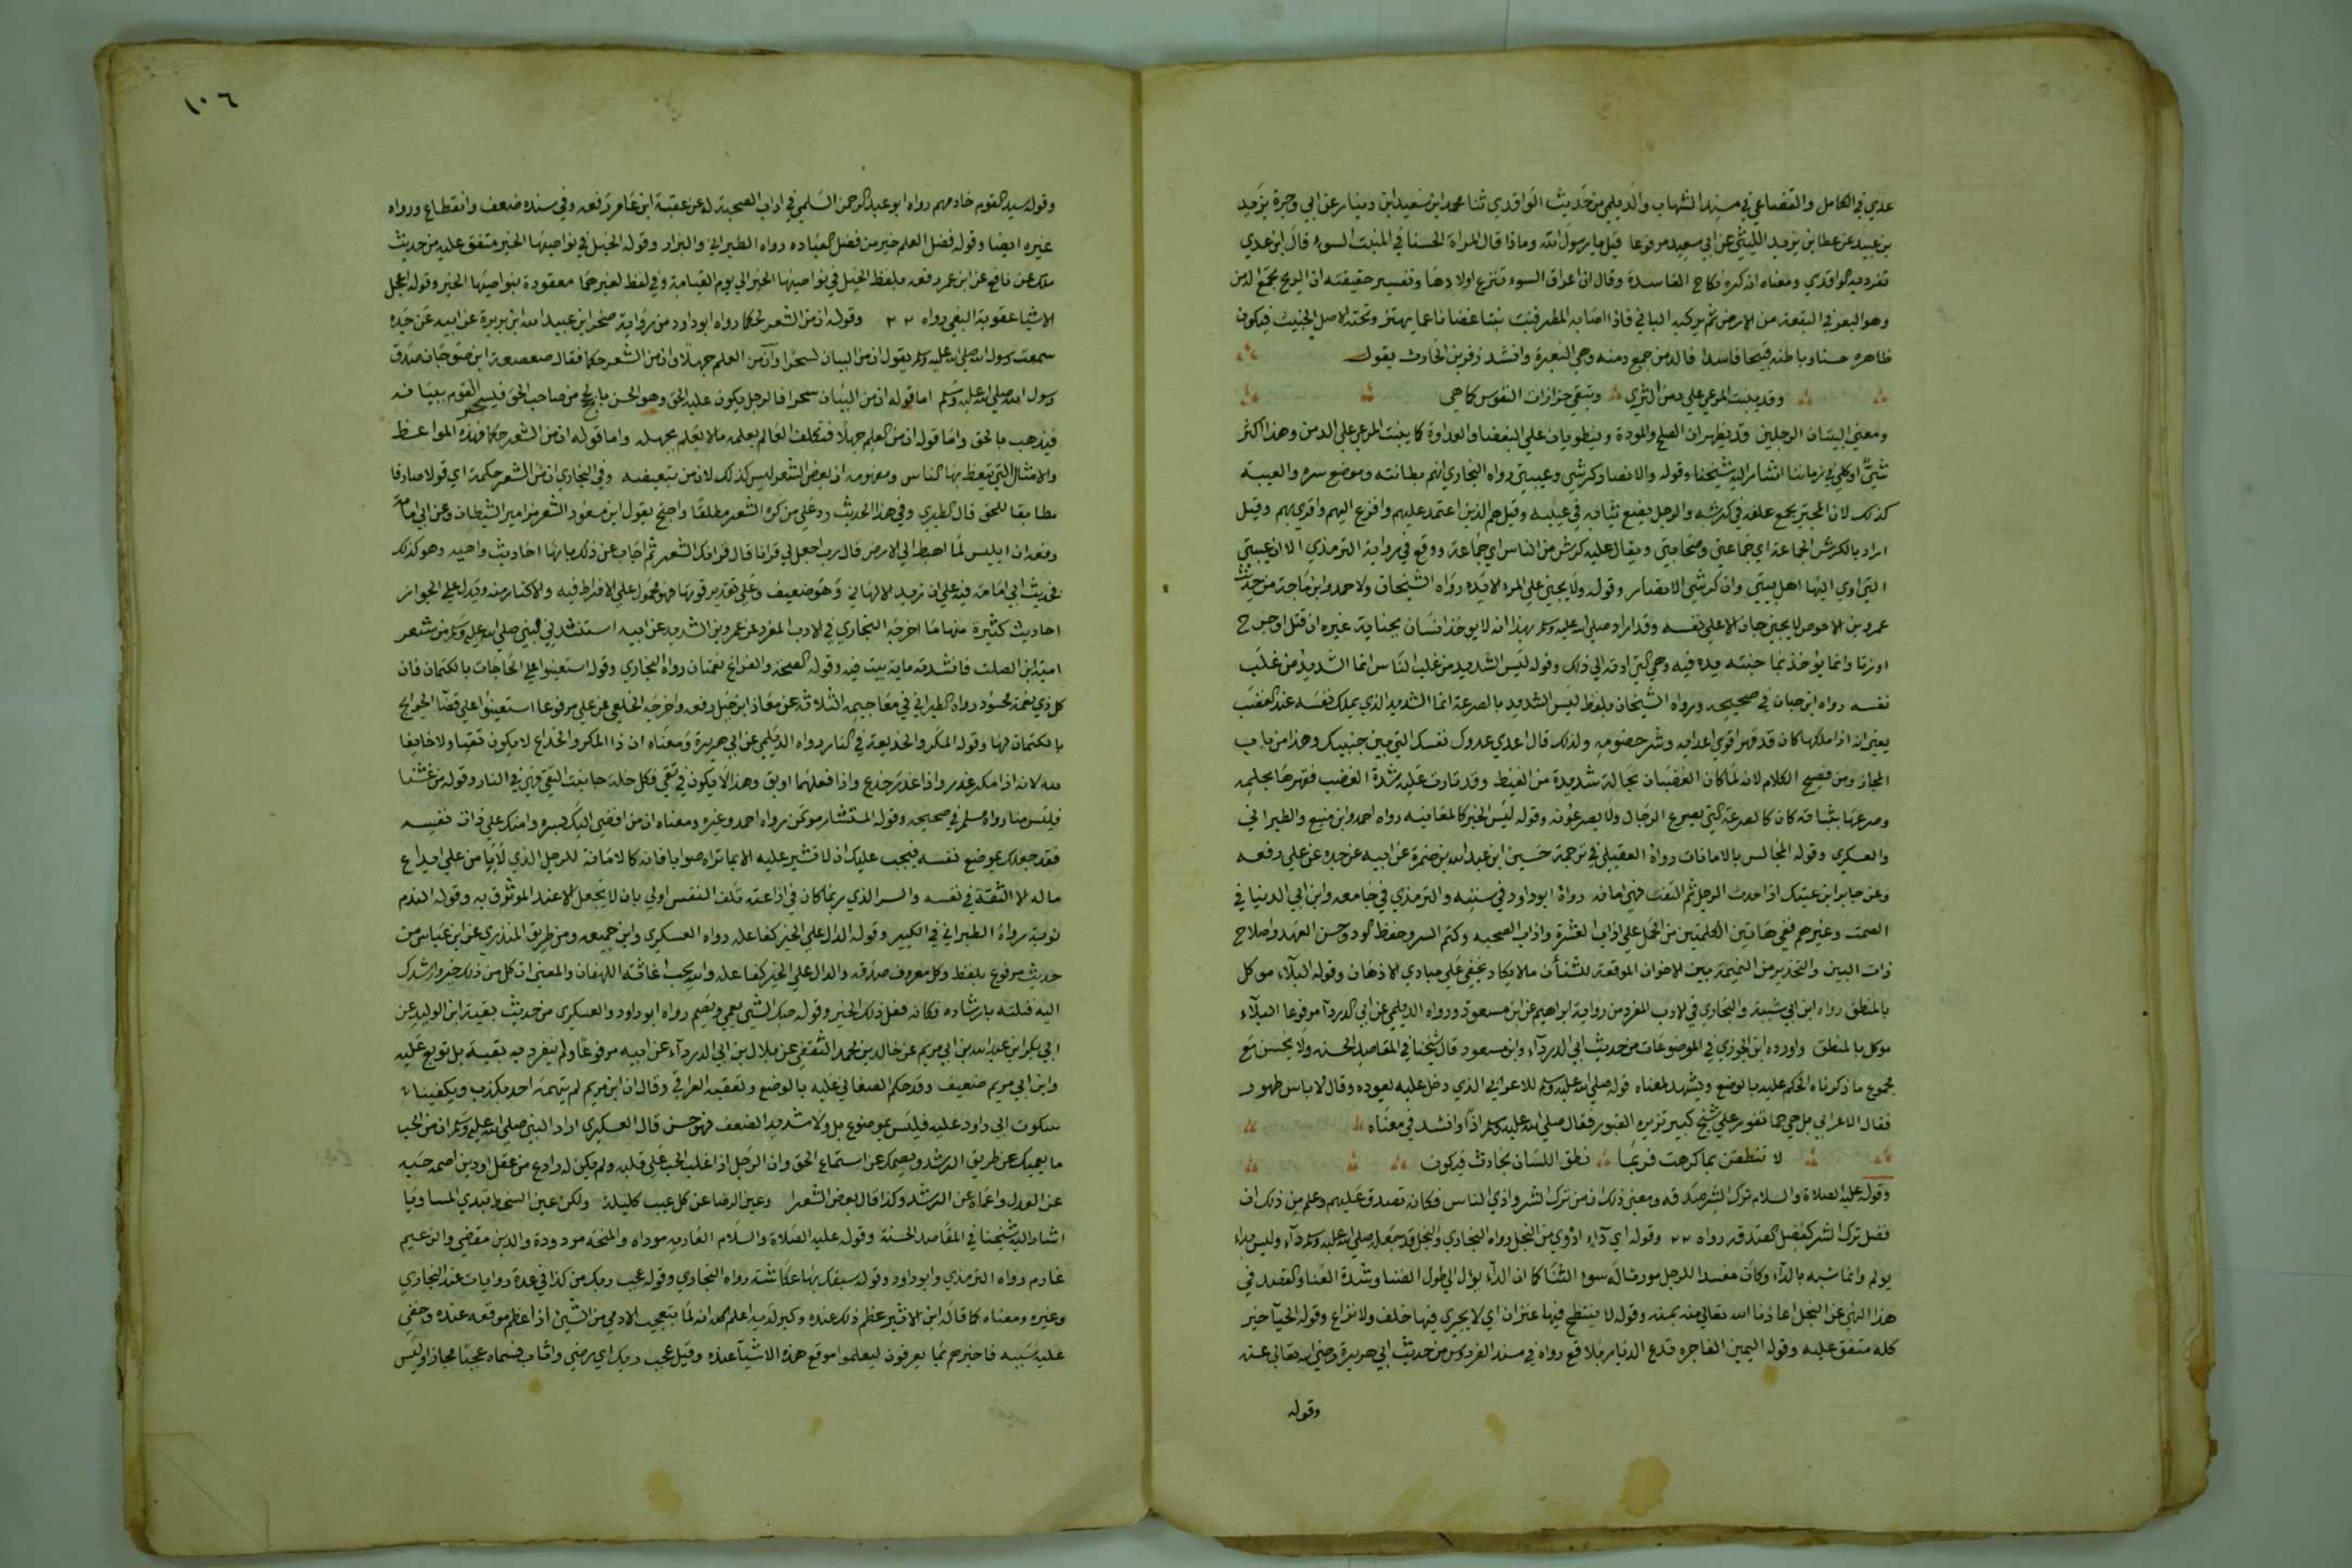 عدي في الكامل والقضاعي في مسند الشهاب والديلمي من حديث الواقدي ثنا محمد ابن سعيد ابن دينار عن ابي وجزة يزيد
بن عبيد عن عطا بن يزيد الليثي عن ابي سعيد مرفوعا قيل يا رسول الله وماذا قال المراة الحسنا في المنبت السوء قال ابن عدي
تفرد به الواقدي ومعناه انه كره نكاح الفاسدة وقال ان اعراق السوء تنزع اولادها وتفسير حقيقته ان الريح تجمع الدمن
وهو البعر في البقعة من الارض ثم يركبه السافي فاذا اصابه المطر فينبت نبتا غضا ناعما يهتز وتحته الاصل الخبيث فيكون
ظاهره حسنا وباطنه قبيحا فاسدا فالدمن جمع دمنه وهي البعرة وانشد زفر بن الحارث يقول
وقد ينبت المرعي علي دمن الثري وتبقي حزازات النفوس كما هي
ومعني البيتان الرجلين قد يظهران الصلح والمودة وينطويان علي البغضا والعداوة كما ينبت المرعي علي الدمن وهذا اكثر
شيئ او كلي في زماننا اشار اليه شيخنا وقوله والانصار كرشي وعيبتي رواه البخاري انهم بطانته وموضع سره والعيبة
كذلك لان المجتر يجمع علفه في كرشه والرجل يضع ثيابه في عيبته وقيل هم الذين اعتمد عليهم وافزع اليهم واقوي بهم وقيل
اراد بالكرش الجماعة اي جماعتي وصحابتي ويقال عليه كرش من الناس اي جماعة ووقع في رواية الترمذي الا ان عيبتي
التي اوي اليها اهل بيتي وان كرشي الانصار وقوله ولا يجني علي المرء الا يده رواه الشيخان ولاحمد وابن ماجة من حديث
عمرو بن الاحوص لا يجني جان الا علي نفسه وقد اراد صلي الله عليه وسلم بهذا انه لا يوخذ انسان بجناية غيره ان قتل او جرح
او زنا وانما يؤخذ بما جنته يده فيه وهي التي ادته الي ذلك وقوله ليس الشديد من غلب الناس انما الشديد من غلب
نفسه رواه ابن حبان في صحيحه ورواه الشيخان بلفظ ليس الشديد بالصرعة انما الشديد الذي يملك نفسه عند الغضب
يعني انه اذا ملكها كان قد قهر اقوي اعدائه وشر خصومه ولذلك قال اعدي عدوك نفسك التي بين جنبيك وهذا من باب
المجاز ومن فصيح الكلام لانه لما كان الغضبان بحالة شديدة من الغيظ وقد ثارت عليه شدة الغضب فقهرها بحلمه
وصرعها بثباته كان كالصرعة التي يصرع الرجال ولا يصرعونه وقوله ليس الخبر كالمعاينه رواه احمد وابن منيع والطبراني
والعسكري وقوله المجالس بالامانات رواه العقيلي في ترجمة حسين ابن عبد الله بن ضمرة عن ابيه عن جده عن علي رفعه
وعن جابر ابن عتيك اذا حدث الرجل ثم التفت فهي امانه رواه ابو داود في سننه والترمذي في جامعه وابن ابي الدنيا في
الصمت وغيرهم ففي هاتين الكلمتين من الحمل علي اداب العشرة واداب الصحبه وكتم السر وحفظ الود وحسن العهد واصلاح
ذات البين والتحذير من النميمة بين الاخوان الموقعة للشنأن ما لا يكاد يخفي علي مبادي الاذهان وقوله البلاء موكل
بالمنطق رواه ابن ابي شيبة والبخاري في الادب المفرد من رواية ابراهيم عن ابن مسعود ورواه الديلمي عن ابي الدردآ مرفوعا البلآء
موكل بالمنطق واورده ابن الجوزي في الموضوعات من حديث ابي الدردآء وابن مسعود قال شيخنا في المقاصد الحسنه ولا يحسن مع
مجموع ما ذكرناه الحكم عليه بالوضع ويشهد لمعناه قوله صلي الله عليه وسلم للاعرابي الذي دخل عليه يعوده وقال لا باس طهور
فقال الاعرابي بل هي حما تفور علي شيخ كبير تزيره القبور فقال صلي الله عليه وسلم اذا وانشد في معناه
لا تنطقن بما كرهت فربما نطق اللسان بحادث فيكون
وقوله عليه الصلاة والسلام ترك الشر صدقه ومعني ذلك ان من ترك الشر واذي الناس فكانه تصدق عليهم وعلم من ذلك ان
فضل ترك الشر كفضل الصدقه رواه ٢٢ وقوله اي دآء ادوي من البخل رواه البخاري والبخل قد جعله صلي الله عليه وسلم دآء وليس بداء
يولم وانما شبه بالدآء وكان مفسدا للرجل مورثا له سوء الثنا كما ان الدآء يؤل الي طول الضنا وشدة العنا والقصد في
هذا النهي عن البخل اعاذنا الله تعالي منه بمنه وقوله لا ينتطح فيها عنزان اي لا يجري فيها خلف ولا نزاع وقوله الحيآ خير
كله متفق عليه وقوله اليمين الفاجره تدع الديار بلاقع رواه في مسند الفردوس من حديث ابي هريرة رضي الله تعالي عنه
وقوله
١٠٦
وقوله سيد القوم خادمهم رواه ابو عبد الرحمن السلمي في اداب الصحبة له عن عقبة ابن عامر رفعه وفي سنده ضعف وانقطاع ورواه
غيره ايضا وقوله فضل العلم خير من فضل العباده رواه الطبراني والبزار وقوله الخيل في نواصيها الخير متفق عليه من حديث
ملك عن نافع عن ابن عمر رفعه بلفظ الخيل في نواصيها الخير الي يوم القيامة وفي لفظ لغيرهما معقودة بنواصيها الخير وقوله اعجل
الاشيا عقوبة البغي رواه ٢٢ وقوله ان من الشعر لحكما رواه ابو داود من رواية صخر ابن عبيد الله ابن بريرة عن ابيه عن جده
سمعت رسول الله صلي الله عليه وسلم يقول ان من البيان لسحرا وان من العلم جهلا وان من الشعر حكما فقال صعصعة ابن صوحان صدق
رسول الله صلي الله عليه وسلم اما قوله ان من البيان سحرا فالرجل يكون عليه الحق وهو الحسن بالحجج من صاحب الحق فيسحر القوم ببيانه
فيذهب بالحق واما قوله ان من العلم جهلا فتكلف العالم بعلمه ما لا يعلم بجهله واما قوله ان من الشعر حكما فهذه المواعظ
والامثال التي يتعظ بها الناس ومفهومه ان بعض الشعر ليس كذلك لان من تبعيضيه وفي البخاري ان من الشعر حكمة اي قولا صادقا
مطابقا للحق قال الطبري وفي هذا الحديث رد علي من كره الشعر مطلقا واحتج بقول ابن مسعود الشعر مزامير الشيطان وعن ابي امامة
رفعه ان ابليس لما اهبط الي الارض قال رب اجعل لي قرانا قال قرانك الشعر ثم اجاب عن ذلك بانها احاديث واهيه وهو كذلك
فحديث ابي امامة فيه علي ان يزيد الالهاني وهو ضعيف وعلي تقدير قوتها فهو محمول علي الافراط فيه والاكثار منه ويدل علي الجواز
احاديث كثيرة منها ما اخرجه البخاري في الادب المفرد عن عمرو بن الشديد عن ابيه استنشدني النبي صلي الله عليه وسلم من شعر
امية ابن الصلت فانشدته ماية بيت فيه وقوله الصحة والفراغ نعمتان رواه البخاري وقوله استعينوا علي الحاجات بالكتمان فان
كل ذي نعمة محسود رواه الطبراني في معاجيمه الثلاثة عن معاذ ابن جبل رفعه واخرجه الخلعي عن علي مرفوعا استعينوا علي قضآ الحوايج
بالكتمان لها وقوله المكر والخديعة في النار رواه الديلمي عن ابي هريرة ومعناه ان ذا المكر والخداع لا يكون تقيا ولا خايفا
لله لانه اذا مكر غدر واذا غدر خدع واذا فعلهما اوبق وهذا لا يكون في تقي فكل خلة جانبت التقي فهي في النار وقوله من غشنا
فليس منا رواه مسلم في صحيحه وقوله المستشار موتمن رواه احمد وغيره ومعناه ان من افضي اليك بسره وامنك علي ذات نفسه
فقد جعلك بموضع نفسه فيجب عليك ان لا تشير عليه الا بما تراه صوابا فانه كالامانة للرجل الذي لا يامن علي ايداع
ماله الا الثقة في نفسه والسر الذي ربما كان في اذاعته تلف النفس اولي بان لا يجعل الا عند الموثوق به وقوله الندم
توبة رواه الطبراني في الكبير وقوله الدال علي الخير كفاعله رواه العسكري وابن جميعه ومن طريق المنذري عن ابن عباس من
حديث مرفوع بلفظ وكل معروف صدقه والدال علي الخير كفاعله والله يحب اغاثة اللهفان والمعني ان كل من ذلك خير وارشدك
اليه فنلته بارشاده فكانه فعل ذلك الخير وقوله حبك الشي يعمي ويصم رواه ابو داود والعسكري من حديث بقية ابن الوليد عن
ابي بكر ابن عبد الله بن ابي مريم عن خالد بن محمد الثقفي عن بلال بن ابي الدردآء عن ابيه مرفوعا ولم ينفرد به بقية بل توبع عليه
وابن ابي مريم ضعيف وقد حكم الصغاني عليه بالوضع وتعقبه العراقي وقال ان ابن مريم لم يتهمه احد بكذب ويكفينا
سكوت ابي داود عليه فليس بموضوع بل ولا شديد الضعف فهو حسن قال العسكري اراد النبي صلي الله عليه وسلم ان من الحب
ما يعميك عن طريق الرشد ويصمك عن استماع الحق وان الرجل اذا غلب الحب علي قلبه ولم يكن له رادع من عقل او دين اصمه حبه
عن العدل واعماه عن الرشد وكذا قال بعض الشعرا وعين الرضا عن كل عيب كليلة ولكن عين السخط تبدي المساويا
اشار اليه شيخنا في المقاصد الحسنة وقوله عليه الصلاة والسلام العارية موداه والمنحه مردودة والدين مقضي والزعيم
غارم رواه الترمذي وابو داود وقوله سبقك بها عكاشة رواه البخاري وقوله عجب ربك من كذا في عدة روايات عند البخاري
وغيره ومعناه كما قاله ابن الاثير عظم ذلك عنده وكبر لديه اعلم الله انه لما يتعجب الادمي من الشيئ اذا عظم موقعه عنده وخفي
عليه سببه فاخبرهم بما يعرفون ليعلموا موقع هذه الاشيآ عنده وقيل عجب ربك اي رضي واثاب فسماه عجبا مجازا وليس